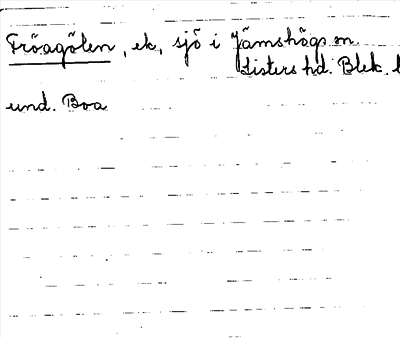 Fröagölen, ek, sjö i Jämshögs sn
Listers hd. Blek.
und. Boa